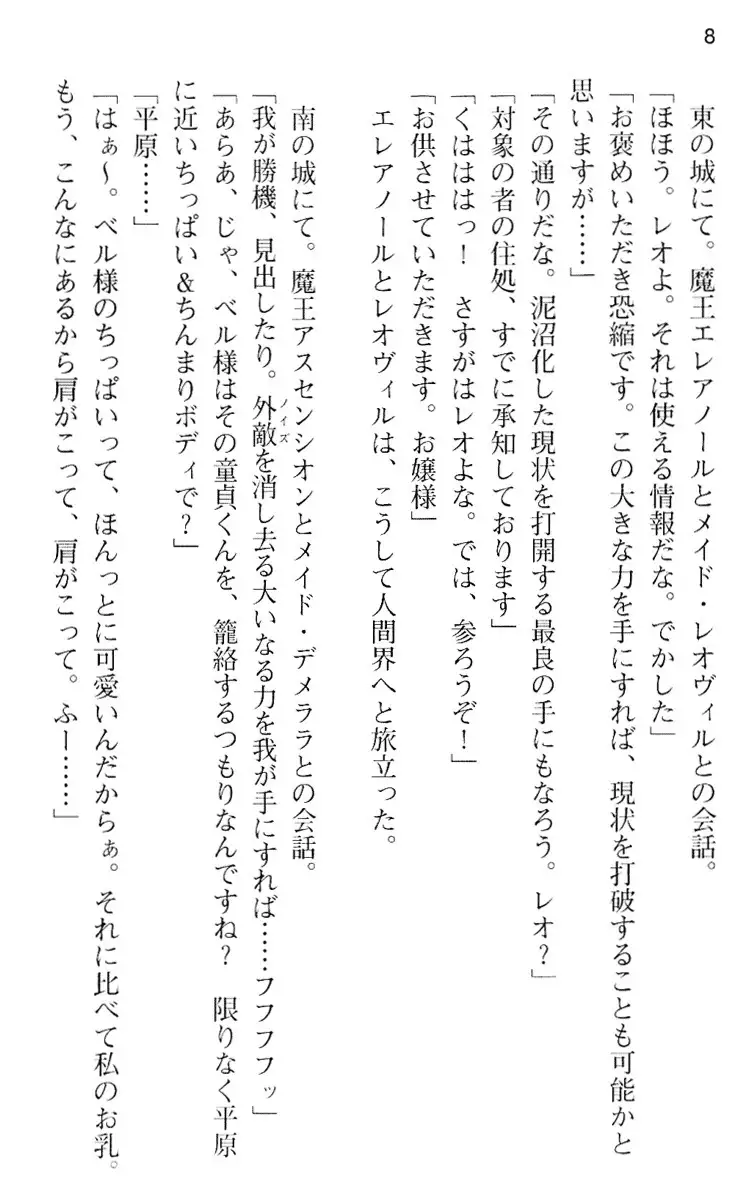 8
東の城にて。魔王エレアノールとメイド・レオヴィルとの会話。
「ほほう。レオよ。それは使える情報だな。でかした」
「お褒めいただき恐縮です。この大きな力を手にすれば、現状を打破することも可能かと
思いますが……」
「その通りだな。泥沼化した現状を打開する最良の手にもなろう。レオ？」
「対象の者の住処、すでに承知しております」
「くはははっ！　さすがはレオよな。では、参ろうぞ！」
「お供させていただきます。お嬢様」
エレアノールとレオヴィルは、こうして人間界へと旅立った。
南の城にて。魔王アスセンシオンとメイド・デメララとの会話。
「我が勝機、見出したり。外敵ノイズを消し去る大いなる力を我が手にすれば……フフフフッ」
「あらあ、じゃ、ベル様はその童貞くんを、籠絡するつもりなんですね？　限りなく平原
に近いちっぱい＆ちんまりボディで？」
「平原……」
「はぁ～。ベル様のちっぱいって、ほんっとに可愛いんだからぁ。それに比べて私のお乳。
もう、こんなにあるから肩がこって、肩がこって。ふー……」